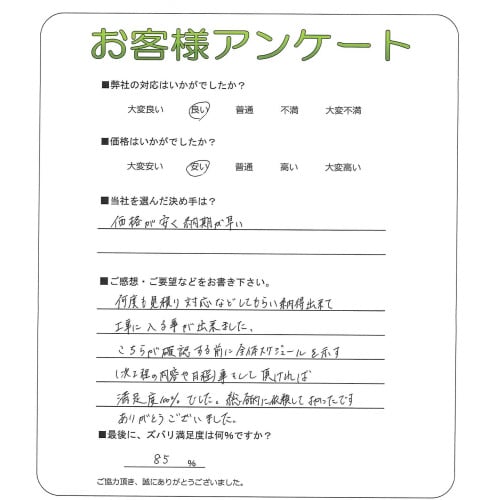 お客様アンケート
■弊社の対応はいかがでしたか？
大変良い 良い 普通 不満 大変不満
■価格はいかがでしたか？
大変安い 安い 普通 高い 大変高い
■当社を選んだ決め手は？
価格が安く納期が早い
■ご感想・ご要望などをお書き下さい。
何度も見積り対応などしてもらい納得出来て
工事に入る事が出来ました。
こちらが確認する前に全体スケジュールを示す
(次工程の内容や日程)事をして頂ければ
満足度100%でした。総合的に依頼して よかったです
ありがとうございました。
■最後に、ズバリ満足度は何％ですか？
85 %
ご協力頂き、誠にありがとうございました。